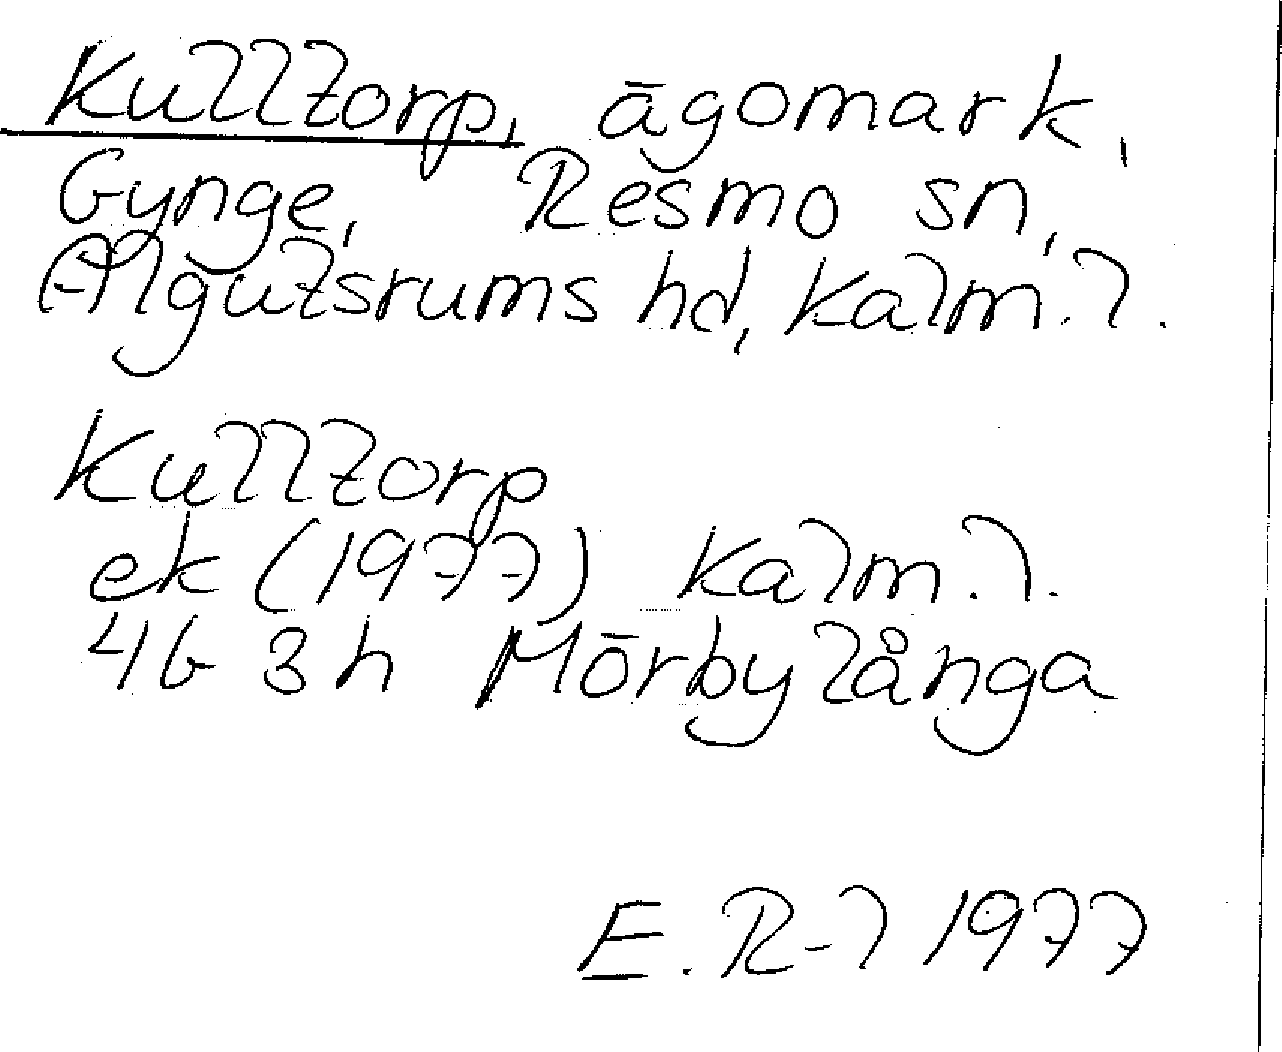 Kulltorp, ägomark,
Gynge, Resmo sn,
Algutsrums hd, Kalm. l.
Kulltorp
ek (1977) Kalm. l.
4G 3h Mörbylånga
E. R-l 1977